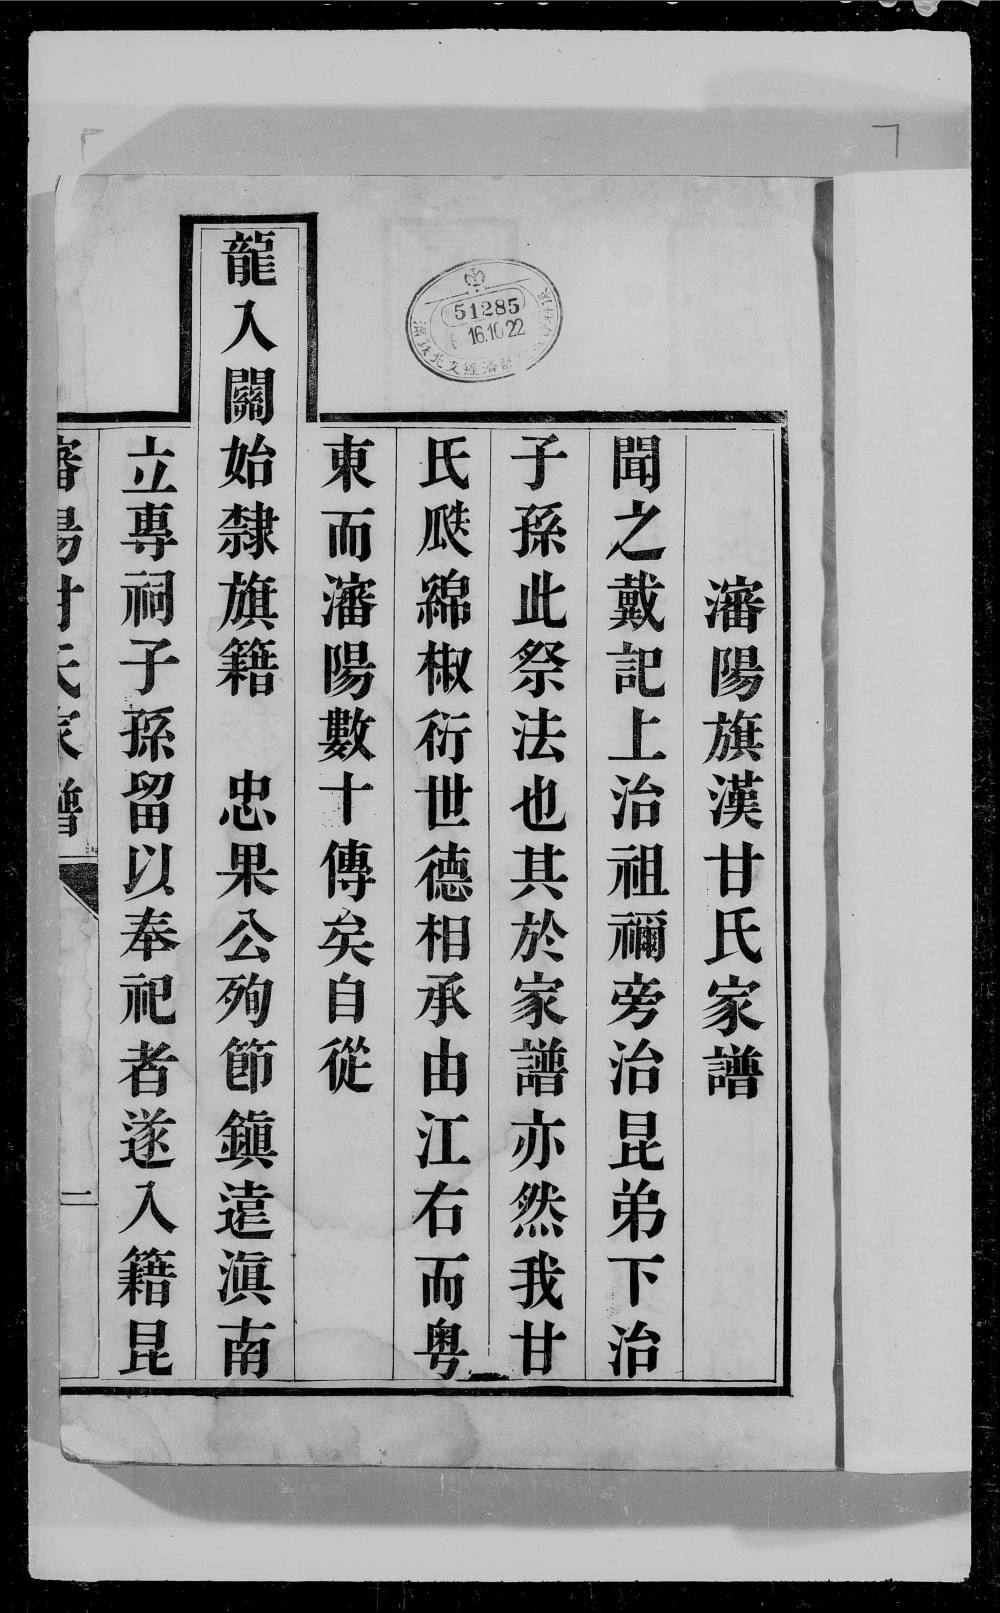 瀋陽旗漢甘氏家譜
聞之戴記上治祖禰旁治昆弟下治
子孫此祭法也其於家譜亦然我甘
氏瓞綿椒衍世德相承由江右而粤
東而瀋陽數十傳矣自從
龍入關始隸旗籍　忠果公殉節鎮遠滇南
立專祠子孫留以奉祀者遂入籍昆
瀋陽甘氏家譜
一
51285
16.10.22